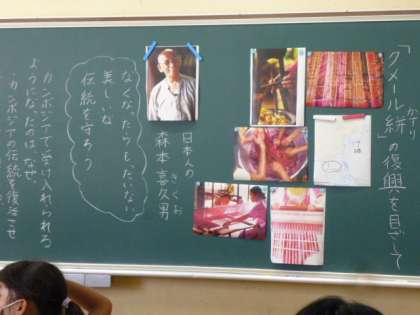 「クメール絣」の復興を目ざして
がすり
日本人の
森本 喜久男
きくお
なくなったらもったいない
美しいな
伝統を守ろう
カンボジアで受け入れられる
ようになったのは、なぜ。
・カンボジアの伝統を復活させ